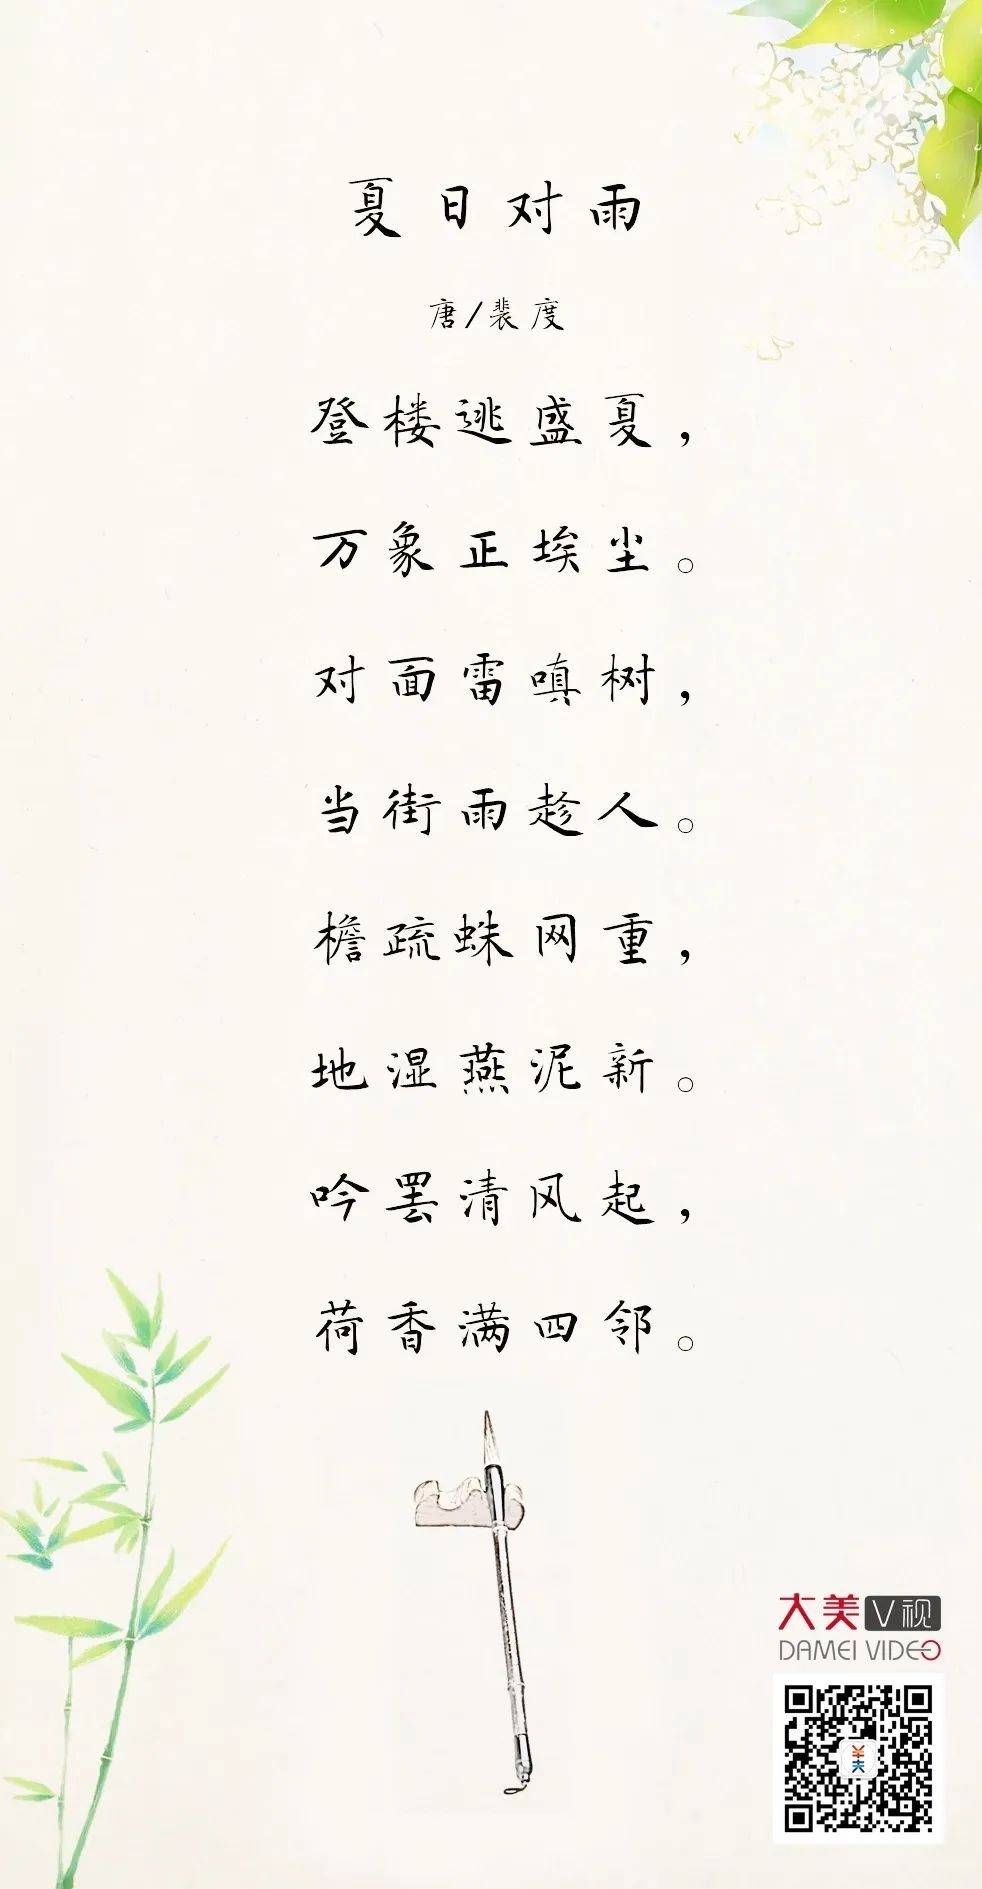 夏日对雨
唐/裴度
登楼逃盛夏，
万象正埃尘。
对面雷嗔树，
当街雨趁人。
檐疏蛛网重，
地湿燕泥新。
吟罢清风起，
荷香满四邻。
大美V视
DAMEI VIDEO